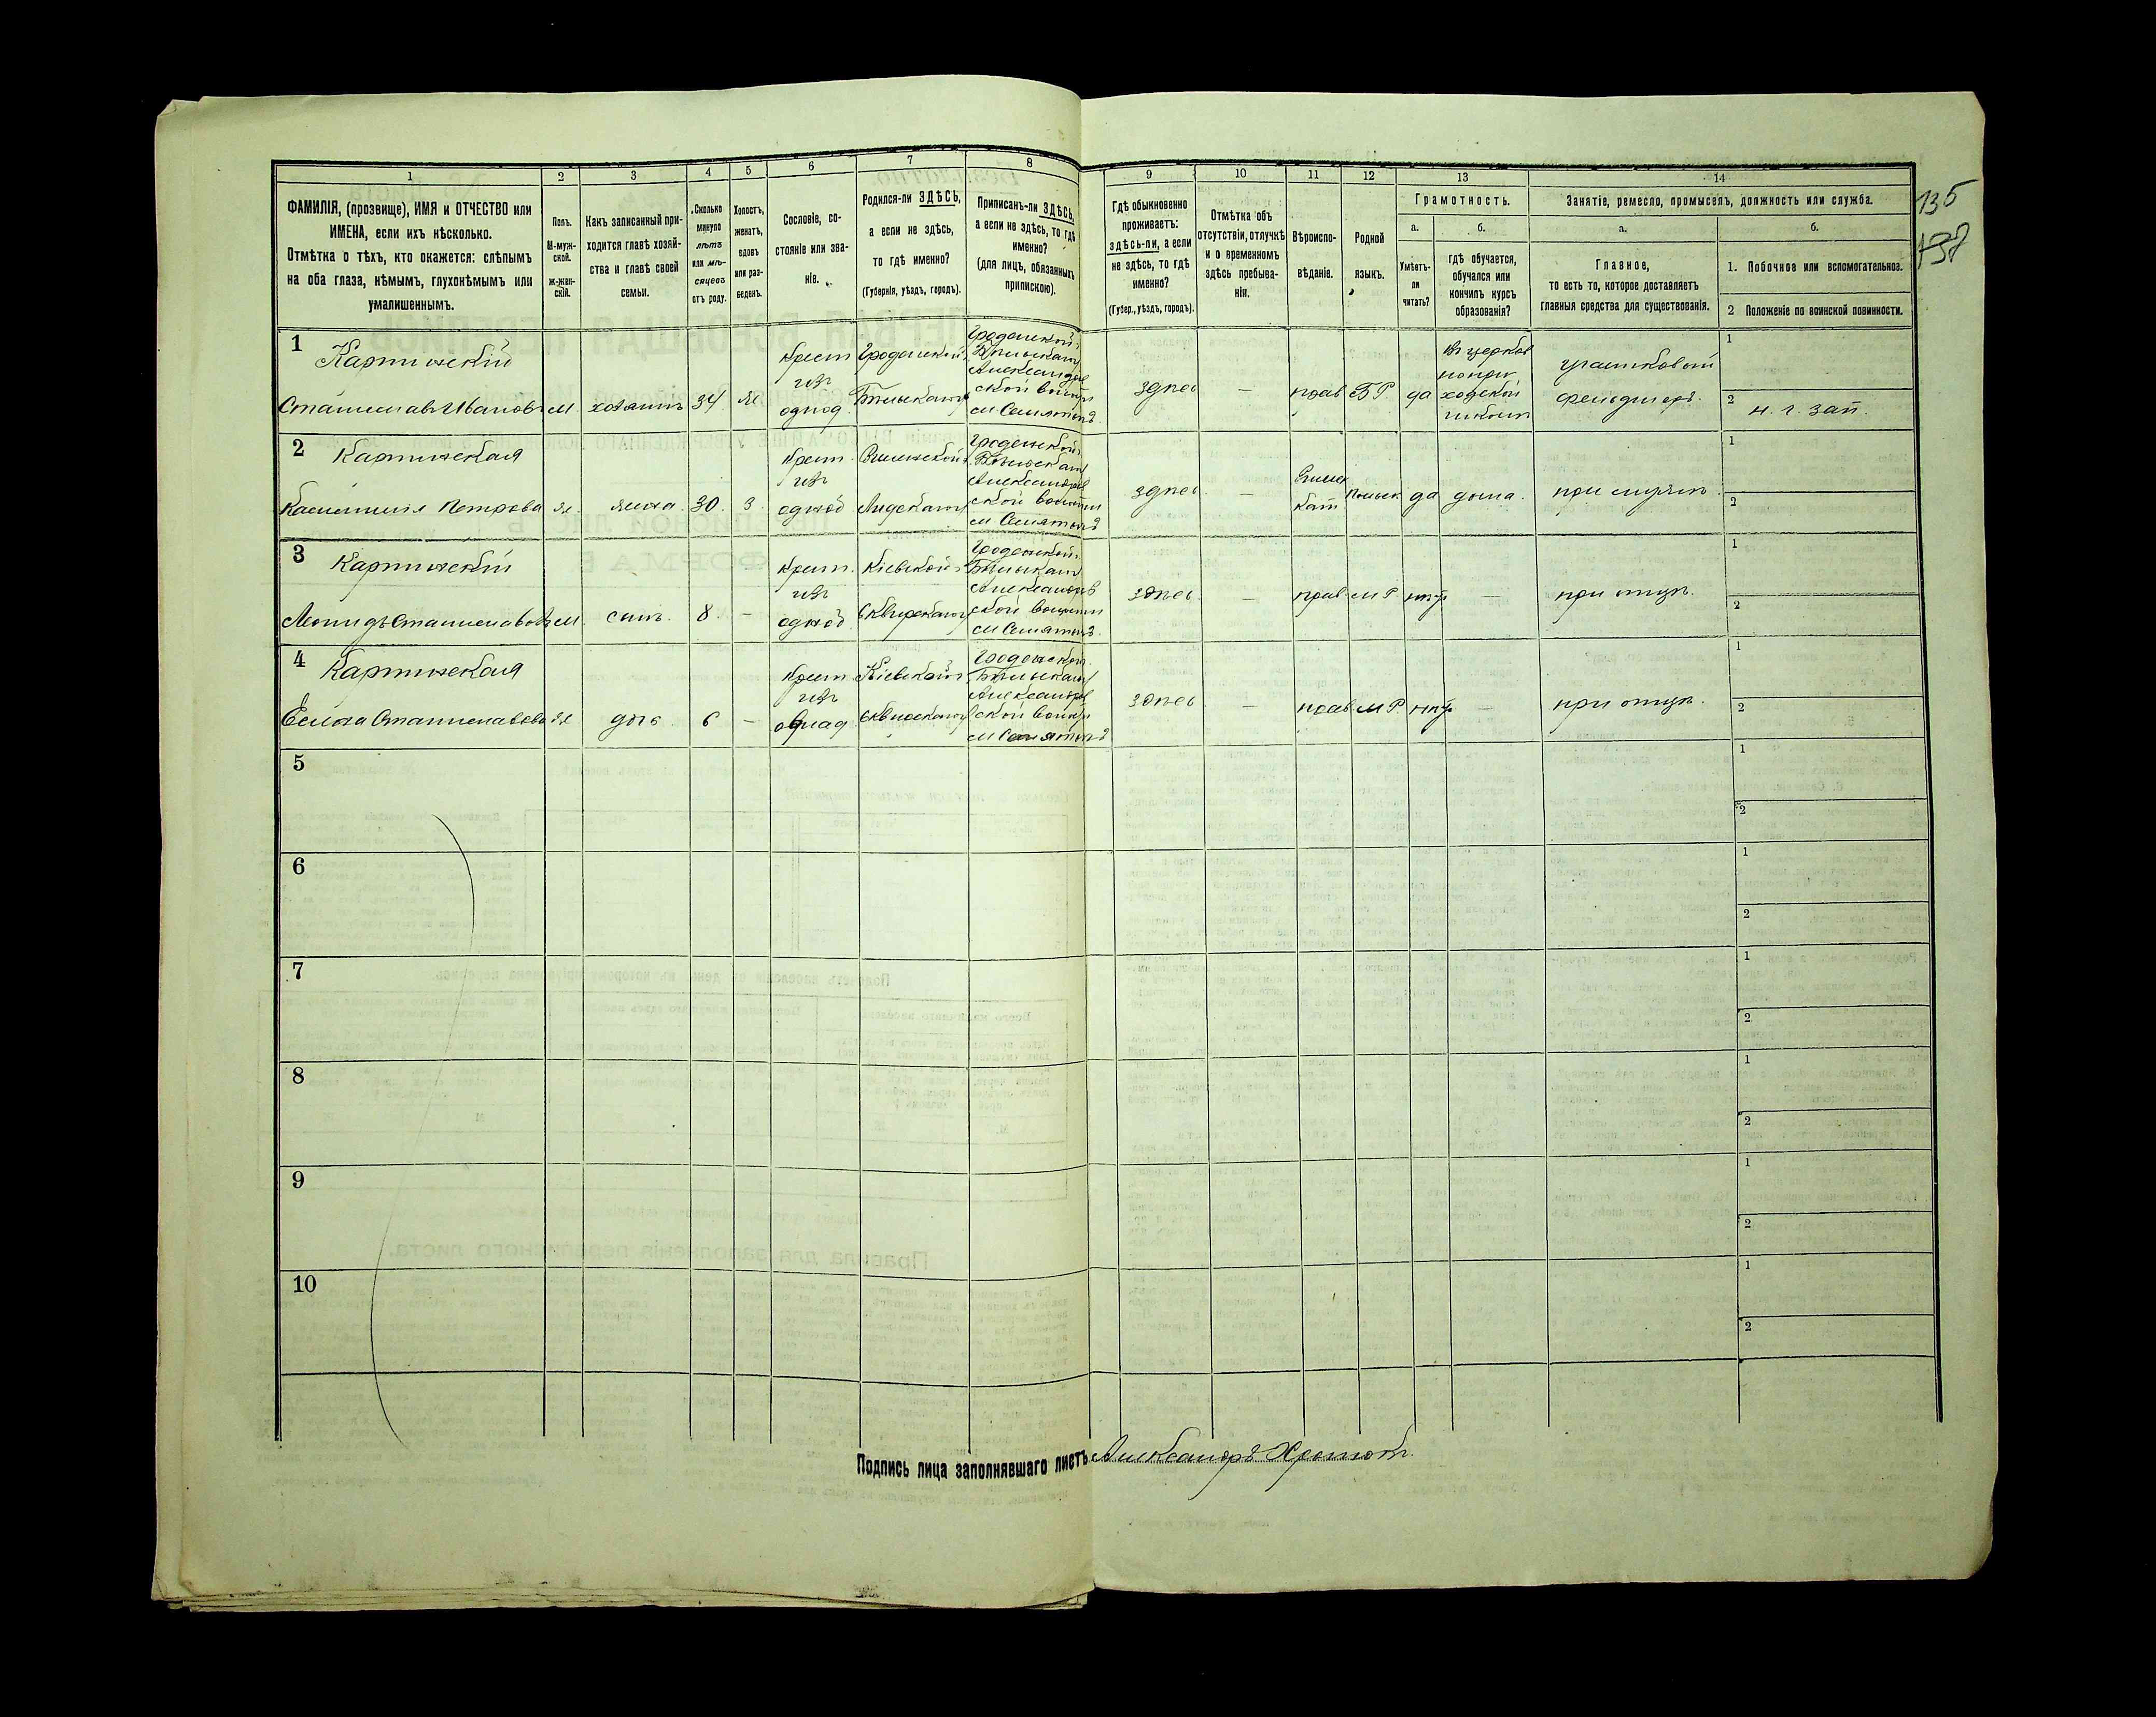 135
138
1 2 3 4 5 6 7 8 9 10 11 12 13 14
ФАМИЛІЯ, (прозвище), ИМЯ и ОТЧЕСТВО или
ИМЕНА, если ихъ нѣсколько.
Отмѣтка о тѣхъ, кто окажется: слѣпымъ
на оба глаза, нѣмымъ, глухонѣмымъ или
умалишеннымъ.
Полъ.
М-муж-
ской.
ж-жен-
скій.
Какъ записанный при-
ходится главѣ хозяй-
ства и главѣ своей
семьи.
Сколько
минуло
лѣтъ
или мѣ-
сяцевъ
отъ роду.
Холостъ,
женатъ,
вдовъ
или раз-
веденъ.
Сословіе, со-
стояніе или зва-
ніе.
Родился-ли ЗДѢСЬ,
а если не здѣсь,
то гдѣ именно?
(Губернія, уѣздъ, городъ).
Приписанъ-ли ЗДѢСЬ,
а если не здѣсь, то гдѣ
именно?
(для лицъ, обязанныхъ
припискою).
Гдѣ обыкновенно
проживаетъ:
здѣсь-ли, а если
не здѣсь, то гдѣ
именно?
(Губер., уѣздъ, городъ).
Отмѣтка объ
отсутствіи, отлучкѣ
и о временномъ
здѣсь пребыва-
ніи.
Вѣроиспо-
вѣданіе.
Родной
языкъ.
Грамотность.
а.
Умѣетъ-
ли
читать?
б.
гдѣ обучается,
обучался или
кончилъ курсъ
образованія?
Занятіе, ремесло, промыселъ, должность или служба.
а.
Главное,
то есть то, которое доставляетъ
главныя средства для существованія.
б.
1. Побочное или вспомогательное.
2 Положеніе по воинской повинности.
1
Станиславъ Ивановъ
м.
хозяинъ
34
крест
изъ
однод.
Гродненской
Гродненской
здѣсь
—
прав
БР.
да
Въ церков
но при
ходской
школѣ
участковый
фельдшеръ.
1
2
н. г. зап.
2
Петрова
ж.
жена.
30.
З.
крест.
изъ
однод
Виленской
Лидскаго
Гродненской
здѣсь
—
Римск
кат
Польск.
да
дома.
при мужѣ.
1
2
3
Леонидъ Станиславовъ
м
сынъ.
8.
—
крест.
изъ
однод
Кіевской
Сквирскаго
Гродненской
здѣсь
—
прав.
МР.
нѣтъ
—
при отцѣ.
1
2
4
Елена Станиславова
ж
дочь.
6
—
крест
изъ
однод
Кіевской
Сквирскаго
Гродненской
здѣсь
—
прав
МР.
нѣтъ
—
при отцѣ.
1
2
5
1
2
6
1
2
7
1
2
8
1
2
9
1
2
10
1
2
Подпись лица заполнявшаго листъ Александръ